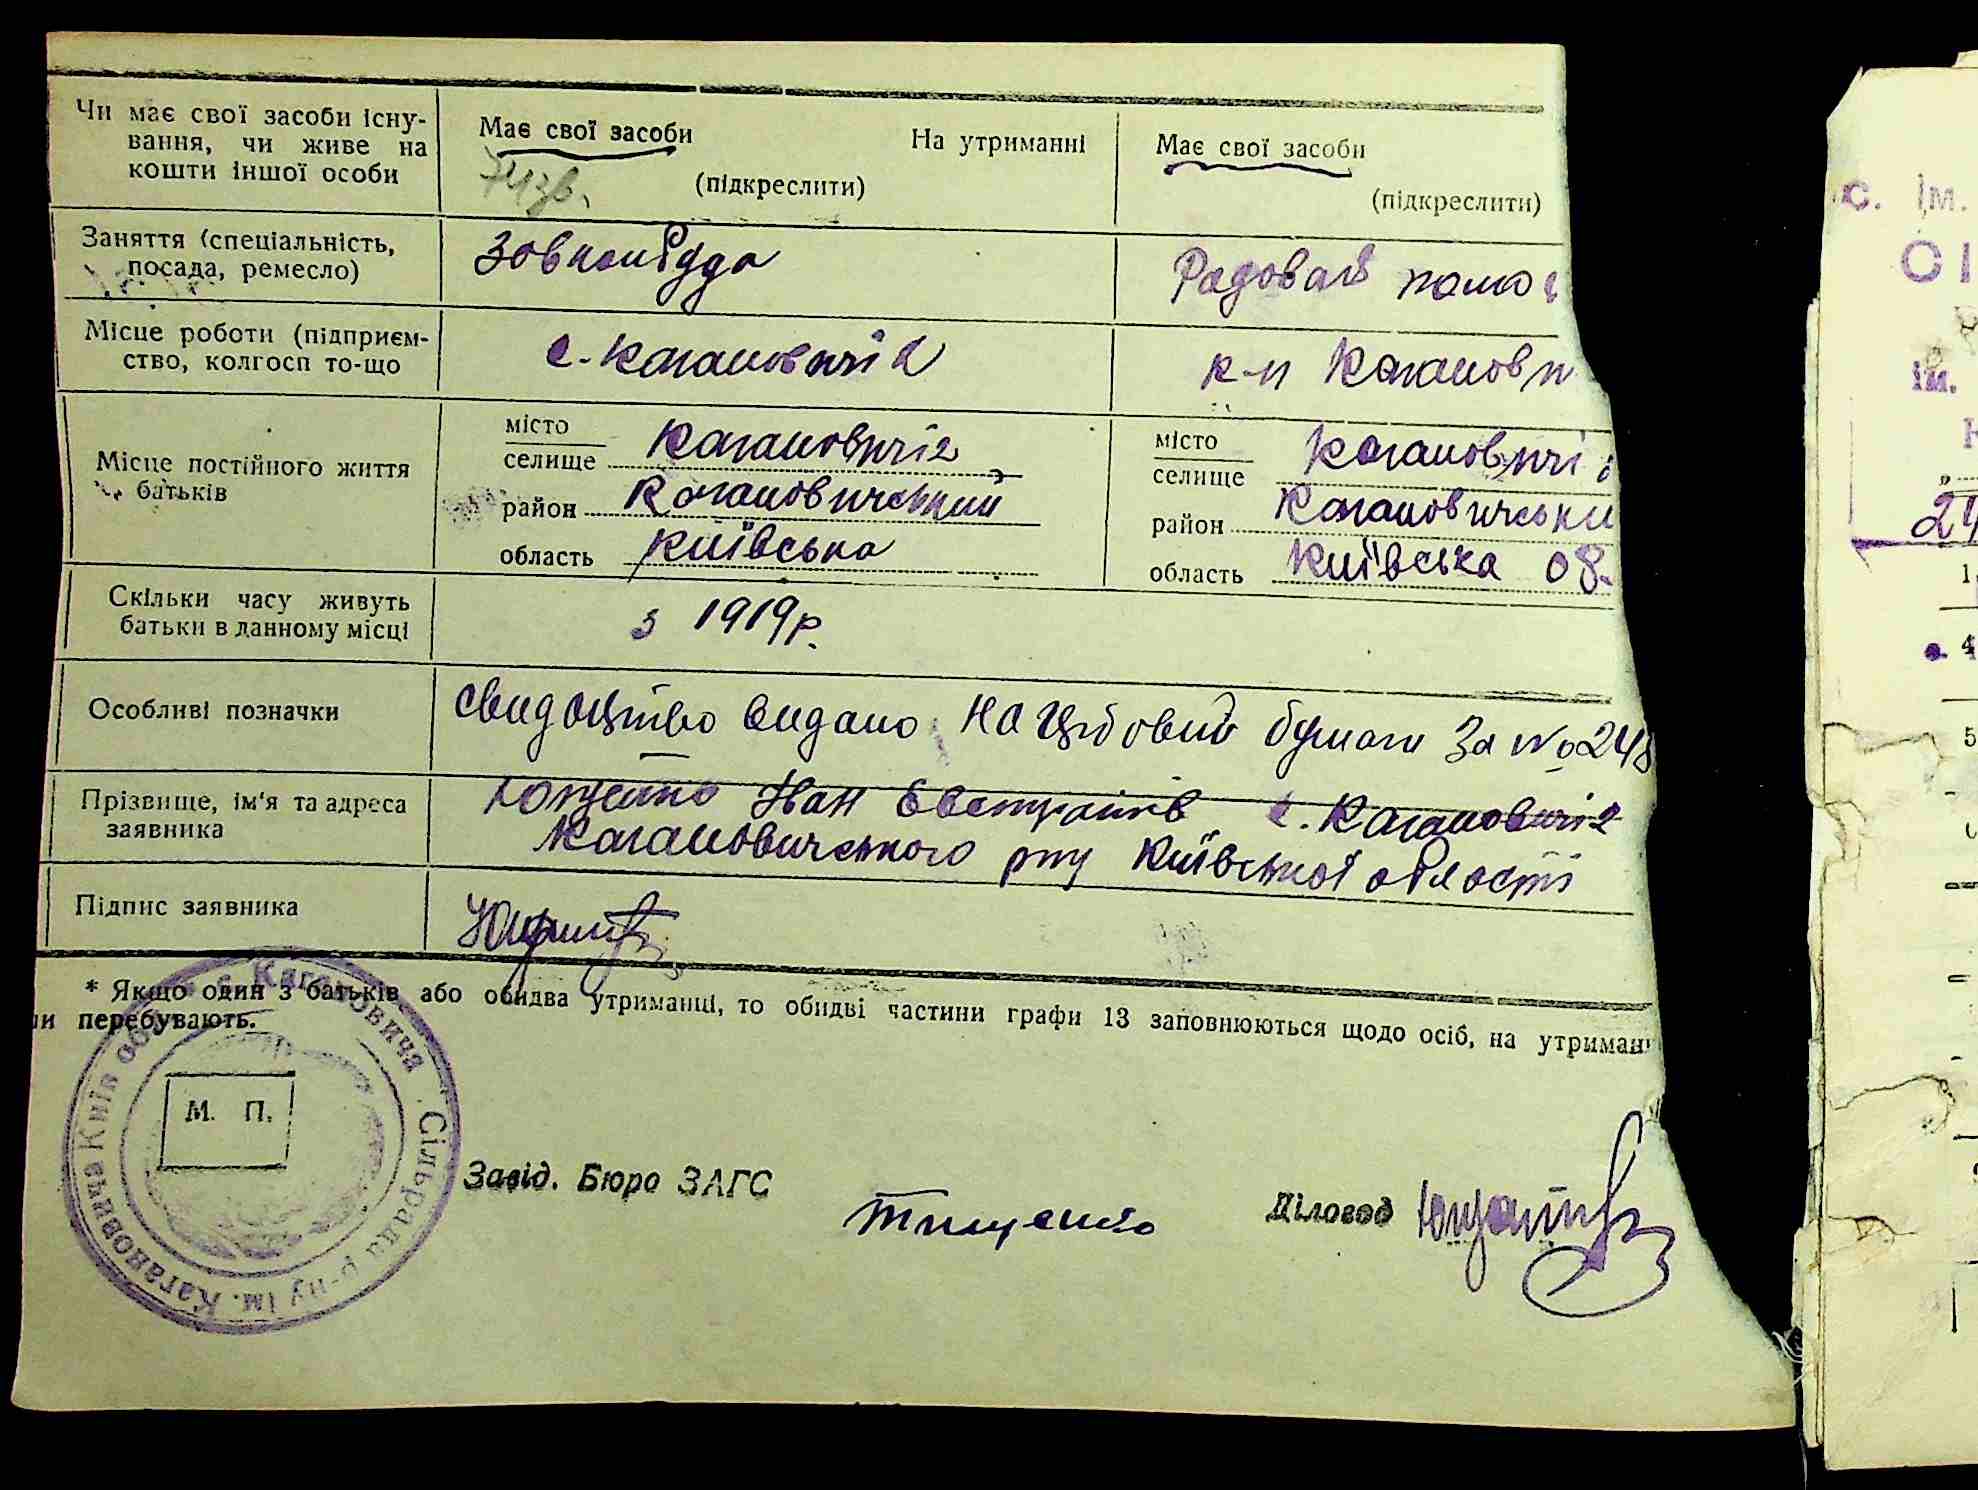 Чи має свої засоби існу-
вання, чи живе на
кошти іншої особи
Має свої засоби
На утриманні
(підкреслити)
Має свої засоби
(підкреслити)
Заняття (спеціальність,
посада, ремесло)
Радовай
Місце роботи (підприєм-
ство, колгосп то-що
с. Кагановичі
к-п Каганови
Місце постійного життя
батьків
місто
селище Кагановичі
район Кагановичський
область Київська
місто
селище Кагановичі
район Кагановичськи
область Київська об.
Скільки часу живуть
батьки в данному місці
з 1919 р.
Особливі позначки
свидоцтво видано на бумаги за № 248
Прізвище, ім'я та адреса
заявника
Іван с. Кагановичі
Кагановичського р-ну Київської області
Підпис заявника
* Якщо один з батьків або обидва утриманці, то обидві частини графи 13 заповнюються щодо осіб, на утриман
ни перебувають.
с. Кагановича Сільрада р-ну ім. Кагановича Київ обл.
М. П.
Завід. Бюро ЗАГС
Тищенко
Діловод
с. ім.
ім.
24
1.
4
5